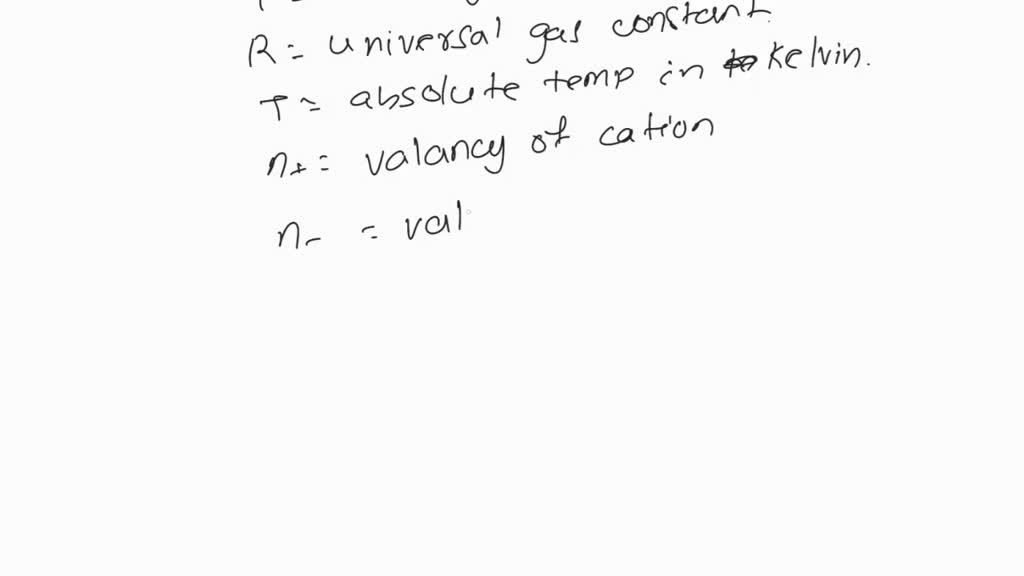 R = universal gas constant.
T = absolute temp in Kelvin.
n+ = valancy of cation
n- = val